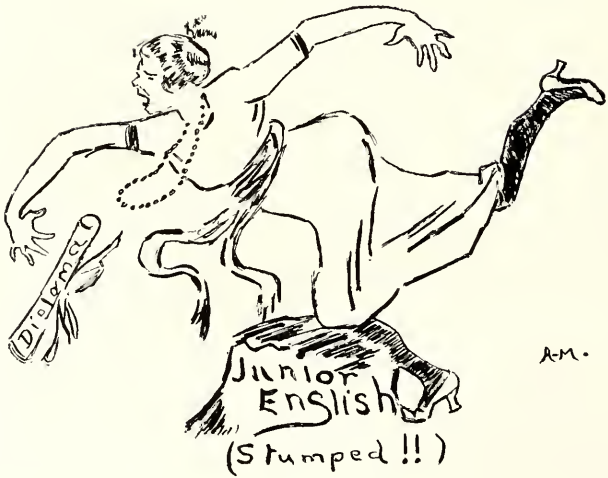 Diploma
Junior
English
(Stumped!!)
A-M.